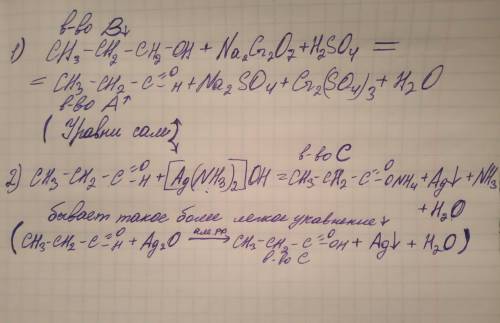 в-во B↓
1) CH₃-CH₂-CH₂-OH + Na₂Cr₂O₇ + H₂SO₄ =
= CH₃-CH₂-C=O H + Na₂SO₄ + Cr₂(SO₄)₃ + H₂O
в-во A↑
(Уравни сам)
в-во C
2) CH₃-CH₂-C=O H + [Ag(NH₃)₂]OH = CH₃-CH₂-C=O ONH₄ + Ag↓ + NH₃
+ H₂O
бывает такое более легкое уравнение↓
(CH₃-CH₂-C=O H + Ag₂O ам.р. → CH₃-CH₂-C=O OH + Ag↓ + H₂O)
в-во C